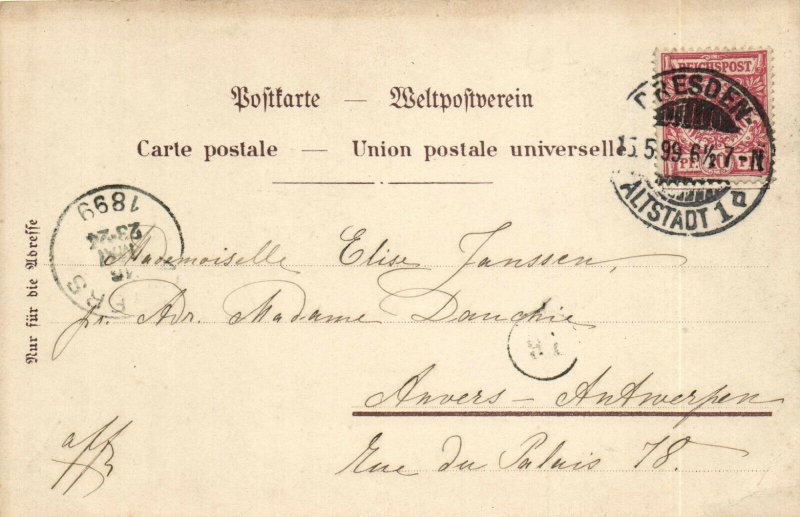 Postkarte — Weltpostverein
Carte postale — Union postale universelle
REICHSPOST
PF. 10 PF
DRESDEN-
5.99. 6½7-N
ALTSTADT 1 a
1899
23-24
MAI
ERS
Nur für die Adresse
Mademoiselle Elise Janssen,
pr. Adr. Madame Dauchie
Anvers – Antwerpen
Rue du Palais 78.